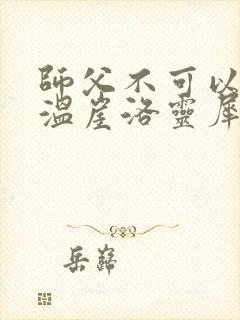 師父不可以
溫崖洛靈犀
岳巍